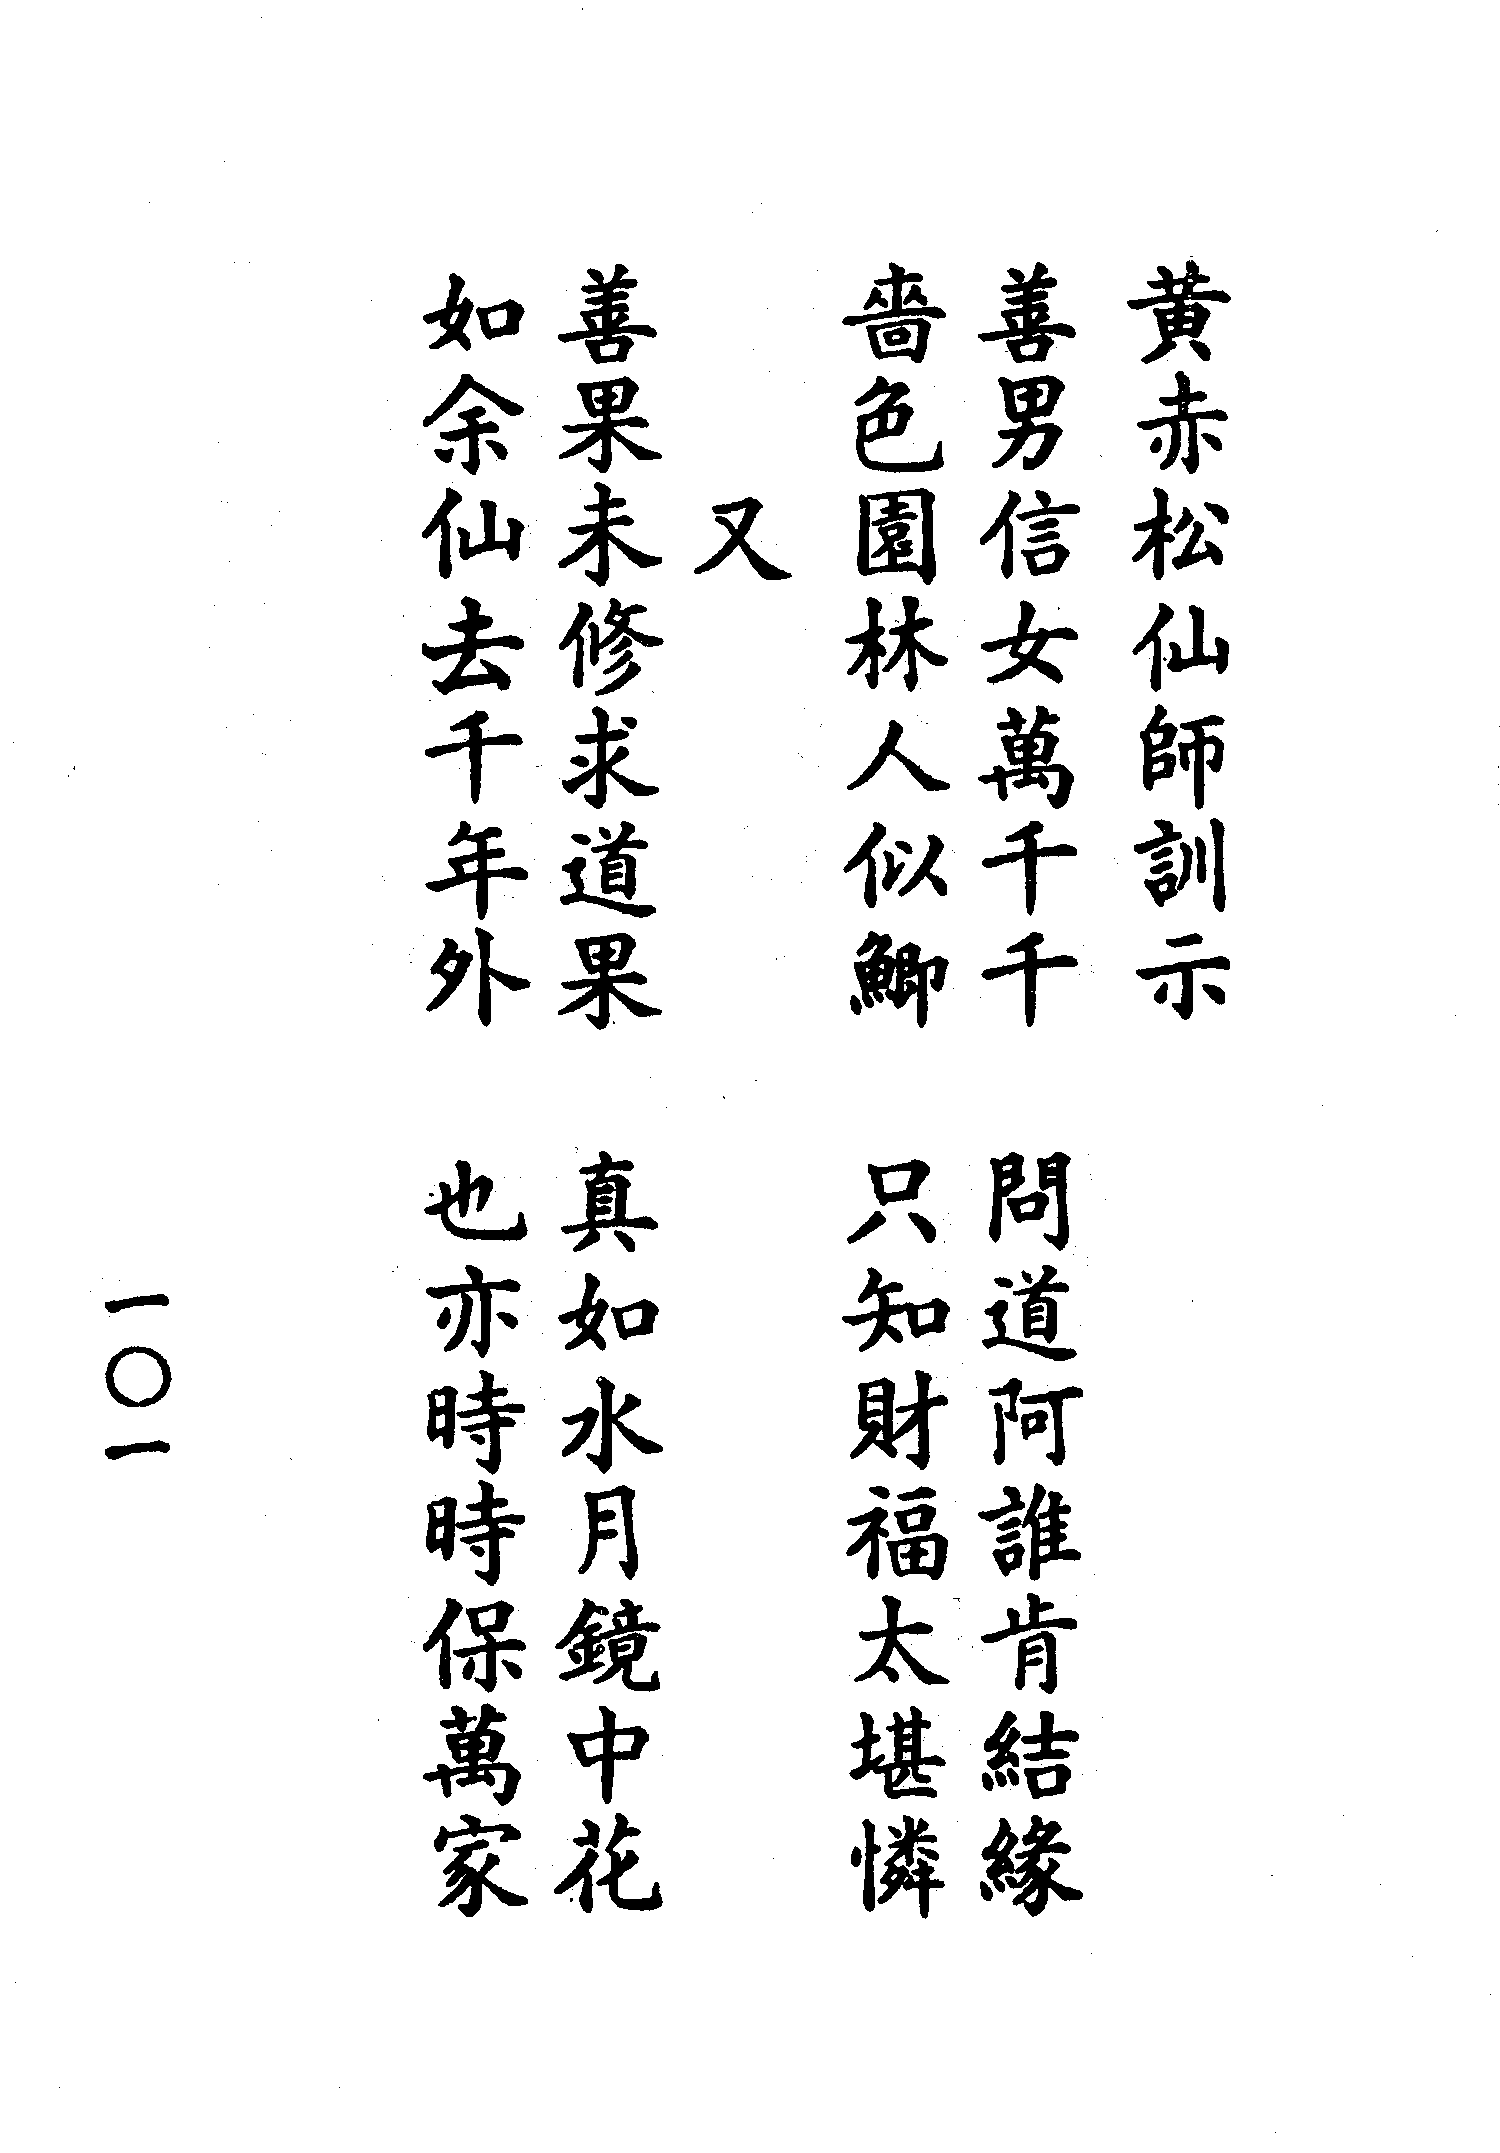 黃赤松仙師訓示
善男信女萬千千　問道阿誰肯結緣
嗇色園林人似鯽　只知財福太堪憐
又
善果未修求道果　真如水月鏡中花
如余仙去千年外　也亦時時保萬家
一〇一